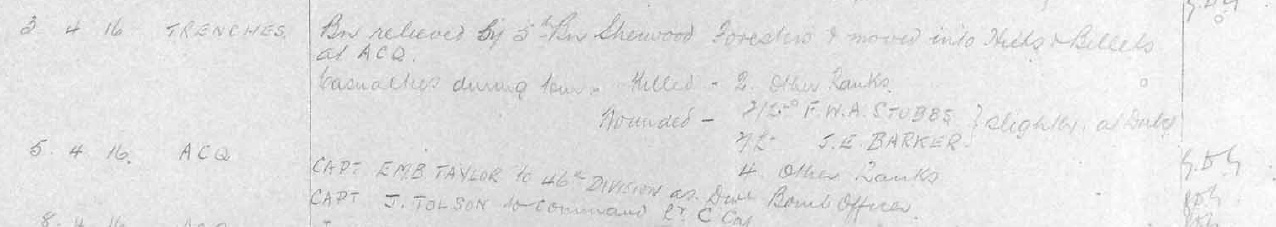 3 4 16 TRENCHES. Bn relieved by 5th Bn Sherwood Foresters & moved into Huts & Billets
at ACQ.
Casualties during tour. Killed - 2. Other Ranks.
Wounded - 2/Lt F.W.A. STUBBS } slightly. at Duty
2/Lt J.E. BARKER
4. Other Ranks
5. 4 16. ACQ CAPT EMB TAYLOR to 46th DIVISION as Divl Bomb Officer.
CAPT J. TOLSON to Command C Coy
8. 4 16 ACQ